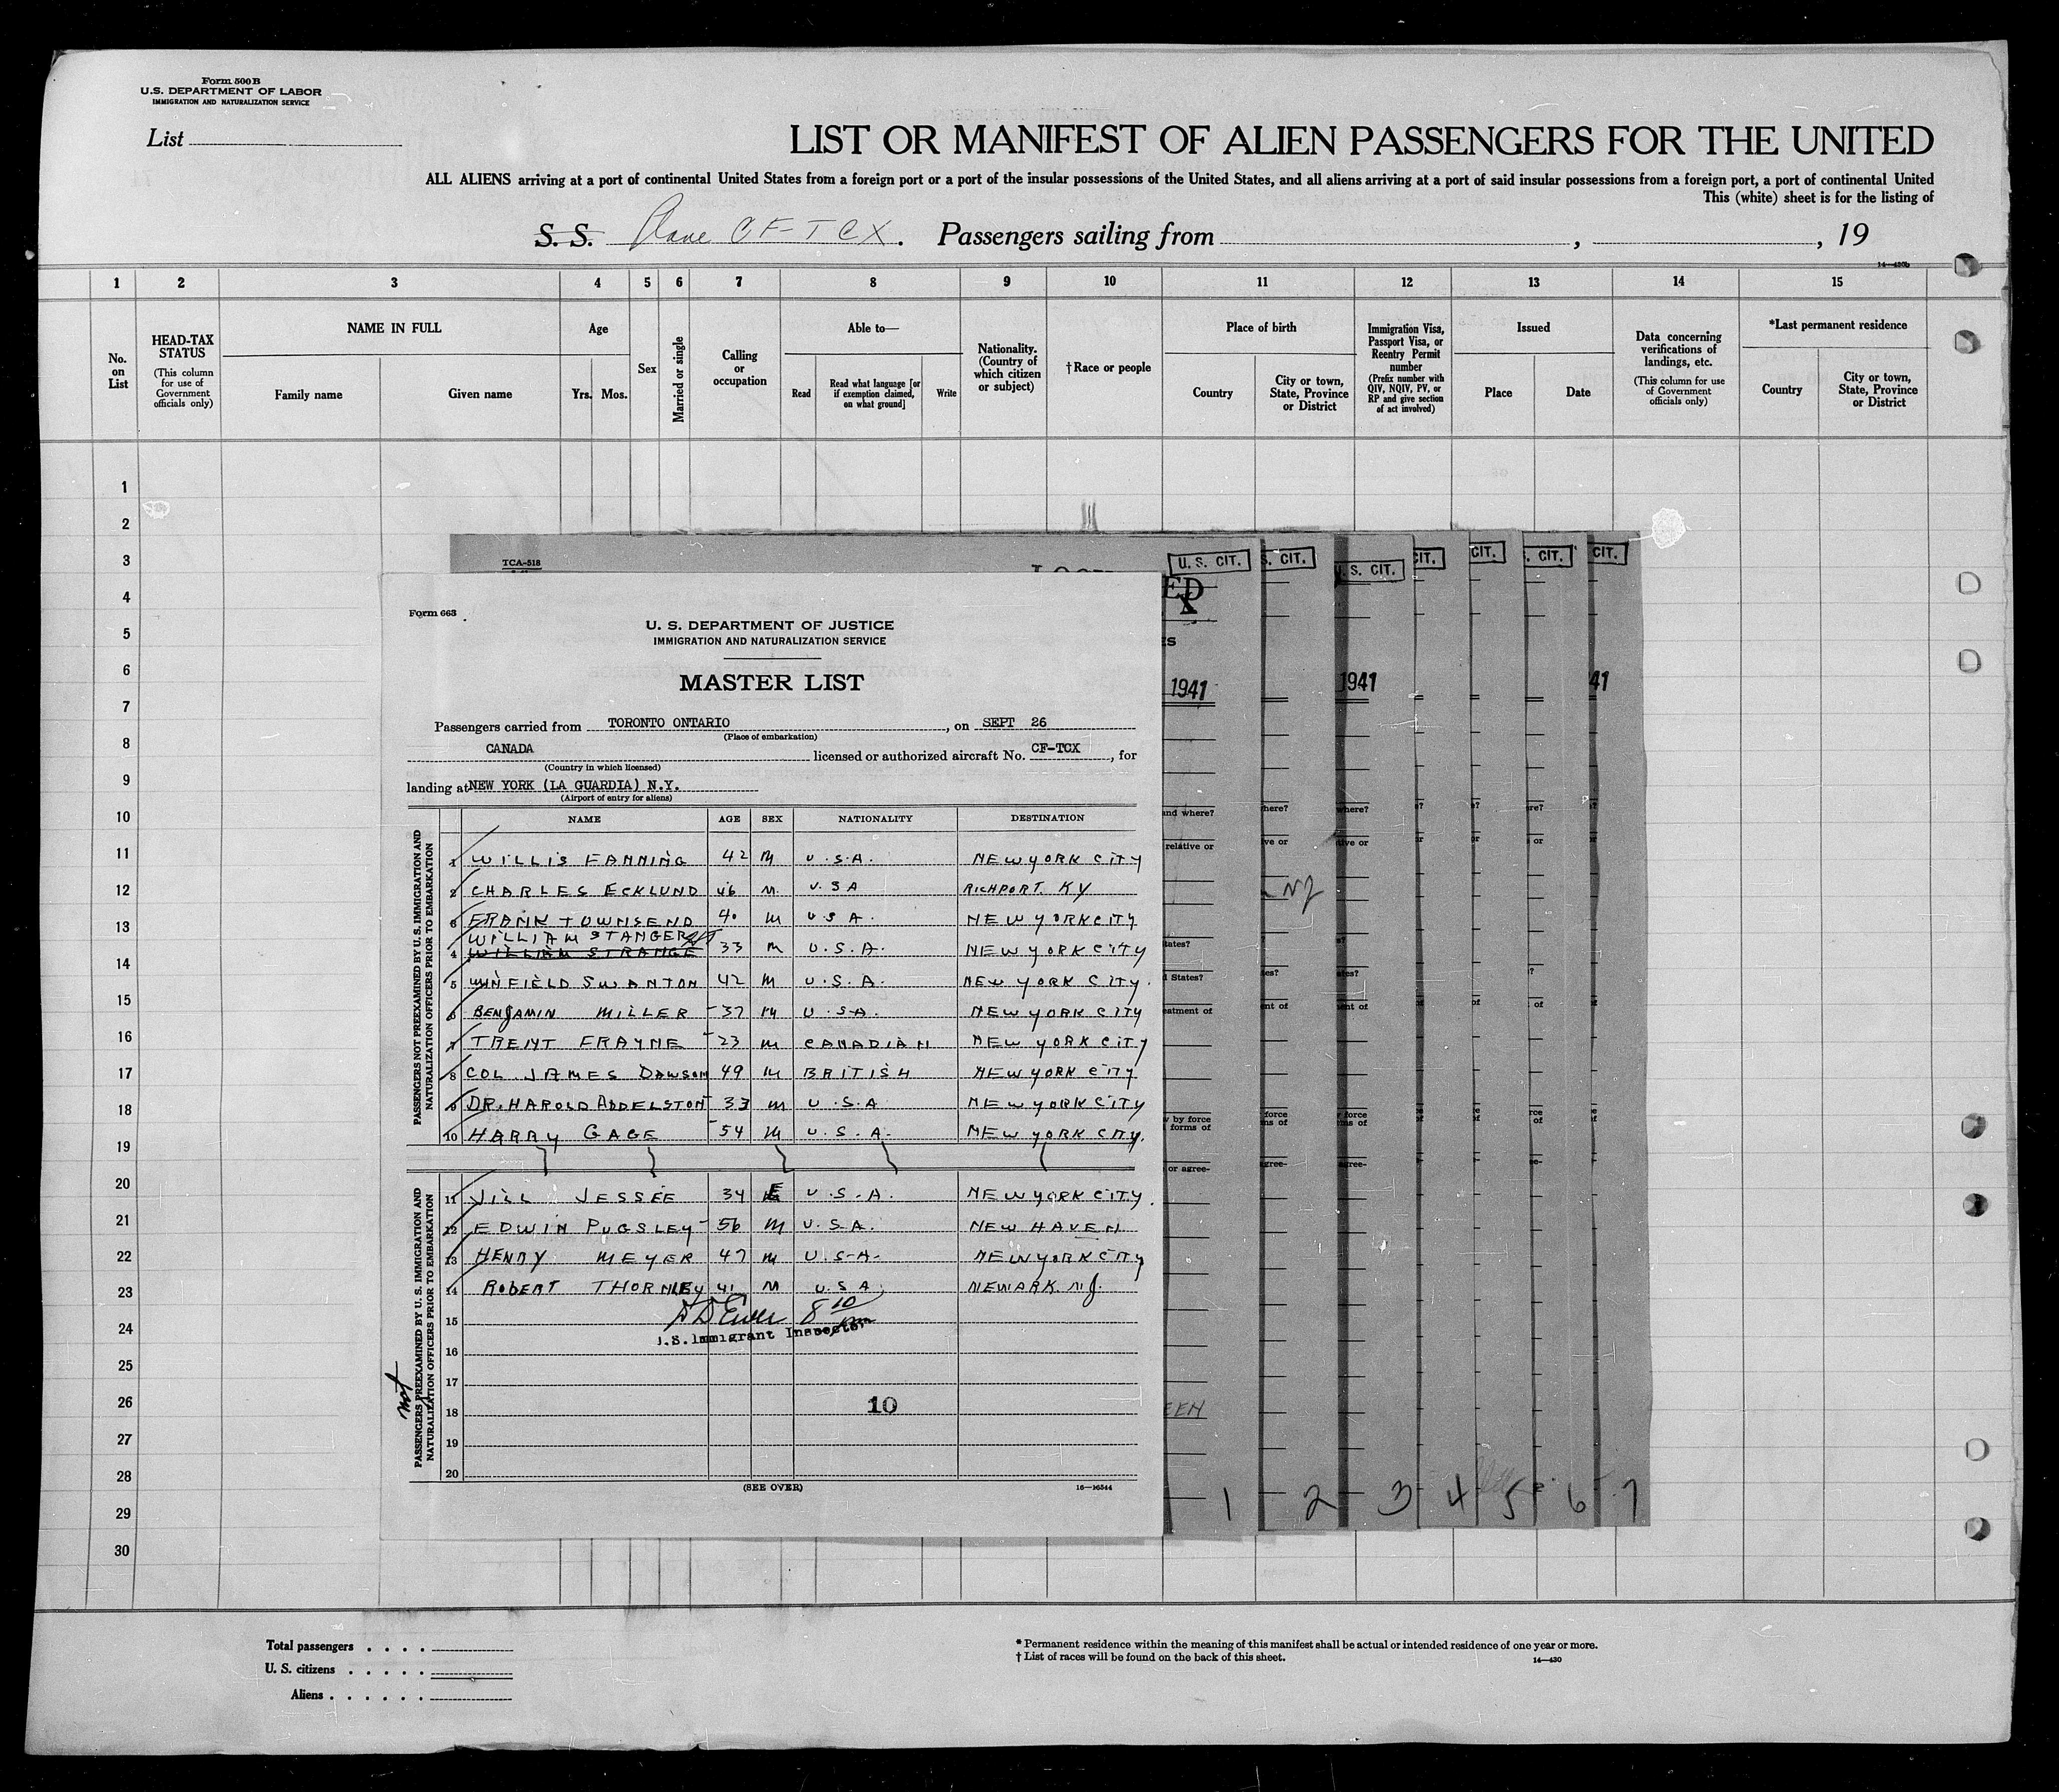 Form 500 B
U.S. DEPARTMENT OF LABOR
IMMIGRATION AND NATURALIZATION SERVICE
List
LIST OR MANIFEST OF ALIEN PASSENGERS FOR THE UNITED
ALL ALIENS arriving at a port of continental United States from a foreign port or a port of the insular possessions of the United States, and all aliens arriving at a port of said insular possessions from a foreign port, a port of continental United
This (white) sheet is for the listing of
S. S. Plane CF-TCX. Passengers sailing from , , 19
14—430b
1 2 3 4 5 6 7 8 9 10 11 12 13 14 15
No. on List
HEAD-TAX STATUS
(This column for use of Government officials only)
NAME IN FULL
Family name Given name
Age
Yrs. Mos.
Sex
Married or single
Calling or occupation
Able to—
Read
Read what language [or if exemption claimed, on what ground]
Write
Nationality. (Country of which citizen or subject)
†Race or people
Place of birth
Country
City or town, State, Province or District
Immigration Visa, Passport Visa, or Reentry Permit number
(Prefix number with QIV, NQIV, PV, or RP and give section of act involved)
Issued
Place Date
Data concerning verifications of landings, etc.
(This column for use of Government officials only)
*Last permanent residence
Country
City or town, State, Province or District
1
2
3
4
5
6
7
8
9
10
11
12
13
14
15
16
17
18
19
20
21
22
23
24
25
26
27
28
29
30
TCA-518
U. S. CIT. S. CIT. U. S. CIT. CIT. CIT. S. CIT. CIT.
ED
X
ES
1941 1941 41
Form 663
U. S. DEPARTMENT OF JUSTICE
IMMIGRATION AND NATURALIZATION SERVICE
MASTER LIST
Passengers carried from TORONTO ONTARIO, on SEPT 26
(Place of embarkation)
CANADA licensed or authorized aircraft No. CF-TCX, for
(Country in which licensed)
landing at NEW YORK (LA GUARDIA) N.Y.
(Airport of entry for aliens)
PASSENGERS NOT PREEXAMINED BY U. S. IMMIGRATION AND NATURALIZATION OFFICERS PRIOR TO EMBARKATION
NAME AGE SEX NATIONALITY DESTINATION
1 WILLIS FANNING 42 M U.S.A. NEW YORK CITY
2 CHARLES ECKLUND 46 M. U.S A RICHPORT. KY
3 FRANK TOWNSEND 40 M U S A. NEW YORK CITY
WILLIAM STANGER
4 WILLIAM STRANGE 33 M U.S.A. NEW YORK CITY
5 WINFIELD SWANTON 42 M U.S.A. NEW YORK CITY.
6 BENJAMIN MILLER 37 M U.S.A. NEW YORK CITY
7 TRENT FRAYNE 23 M CANADIAN NEW YORK CITY
8 COL. JAMES DAWSON 49 M BRITISH NEW YORK CITY
9 DR. HAROLD ADDELSTON 33 M U.S.A NEW YORK CITY
10 HARRY GAGE 54 M U.S.A. NEW YORK CITY.
not
PASSENGERS PREEXAMINED BY U. S. IMMIGRATION AND NATURALIZATION OFFICERS PRIOR TO EMBARKATION
11 JILL JESSEE 34 F U.S.A. NEW YORK CITY.
12 EDWIN PUGSLEY 56 M U.S.A. NEW HAVEN
13 HENRY MEYER 47 M U.S.A. NEW YORK CITY
14 ROBERT THORNLEY 41 M U S A NEWARK. N.J.
8 10
15
U.S. Immigrant Inspector
16
17
18 10
19
20
(SEE OVER)
16—16544
and where? here? where? re?
relative or ive or tive or or or
NJ
tates?
d States? tes? ates?
eatment of ent of ent of of of
by force force force rce rce
forms of ms of ms of of of
or agree- agree- agree- ee-
EEN
1 2 3 4 5 6 7
Total passengers . . . .
U. S. citizens . . . . .
Aliens . . . . . .
* Permanent residence within the meaning of this manifest shall be actual or intended residence of one year or more.
† List of races will be found on the back of this sheet.
14—430